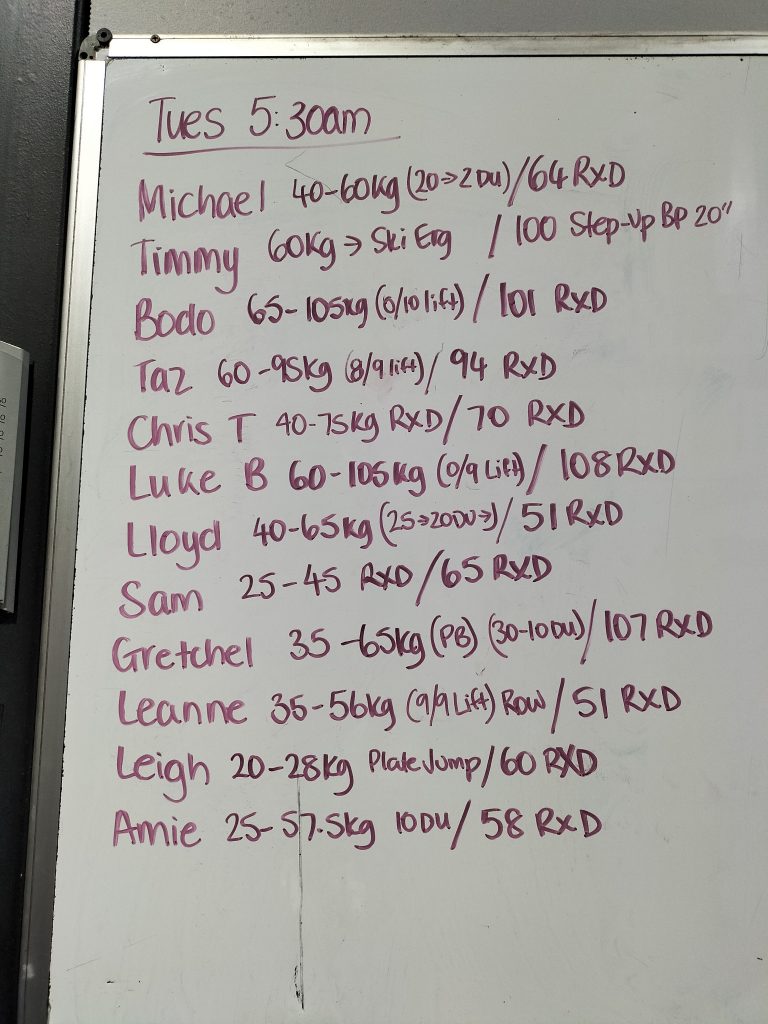 Tues 5:30am
Michael 40-60kg (20→2DU)/64 RXD
Timmy 60Kg → Ski Erg / 100 Step-Up BP 20"
Bodo 65-105kg (0/10 lift) / 101 RXD
Taz 60-95kg (8/9 lift) / 94 RXD
Chris T 40-75kg RXD/70 RXD
Luke B 60-105kg (0/9 Lift) / 108 RXD
Lloyd 40-65kg (25→20DU→)/51 RXD
Sam 25-45 RXD/65 RXD
Gretchel 35-65kg (PB) (30-10DU)/107 RXD
Leanne 35-56kg (9/9 Lift) Row / 51 RXD
Leigh 20-28kg Plate Jump/60 RXD
Amie 25-57.5kg 10DU/ 58 RXD